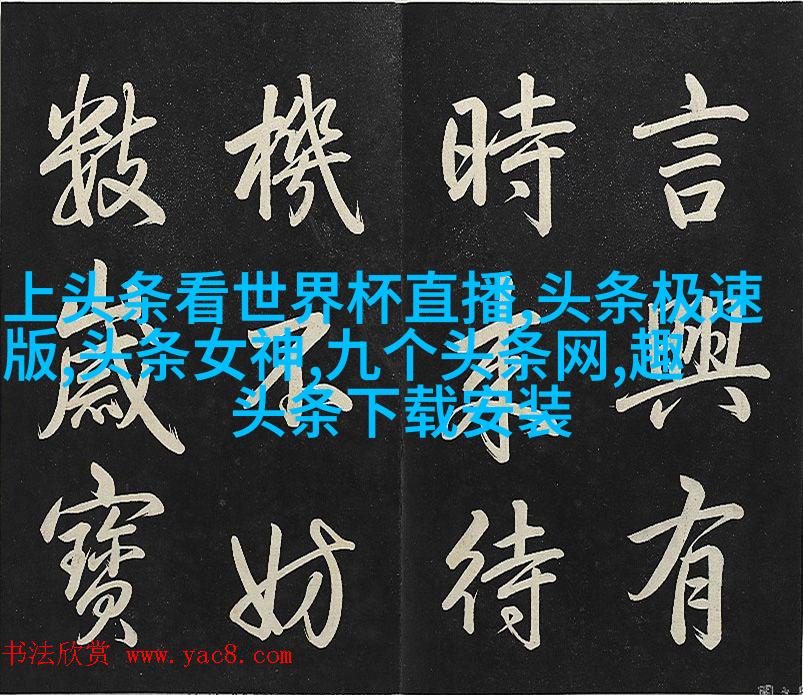 言與有
時待
機不妨
數歲寶
上头条看世界杯直播,头条极速
版,头条女神,九个头条网,趣
头条下载安装
书法欣赏 www.yac8.com